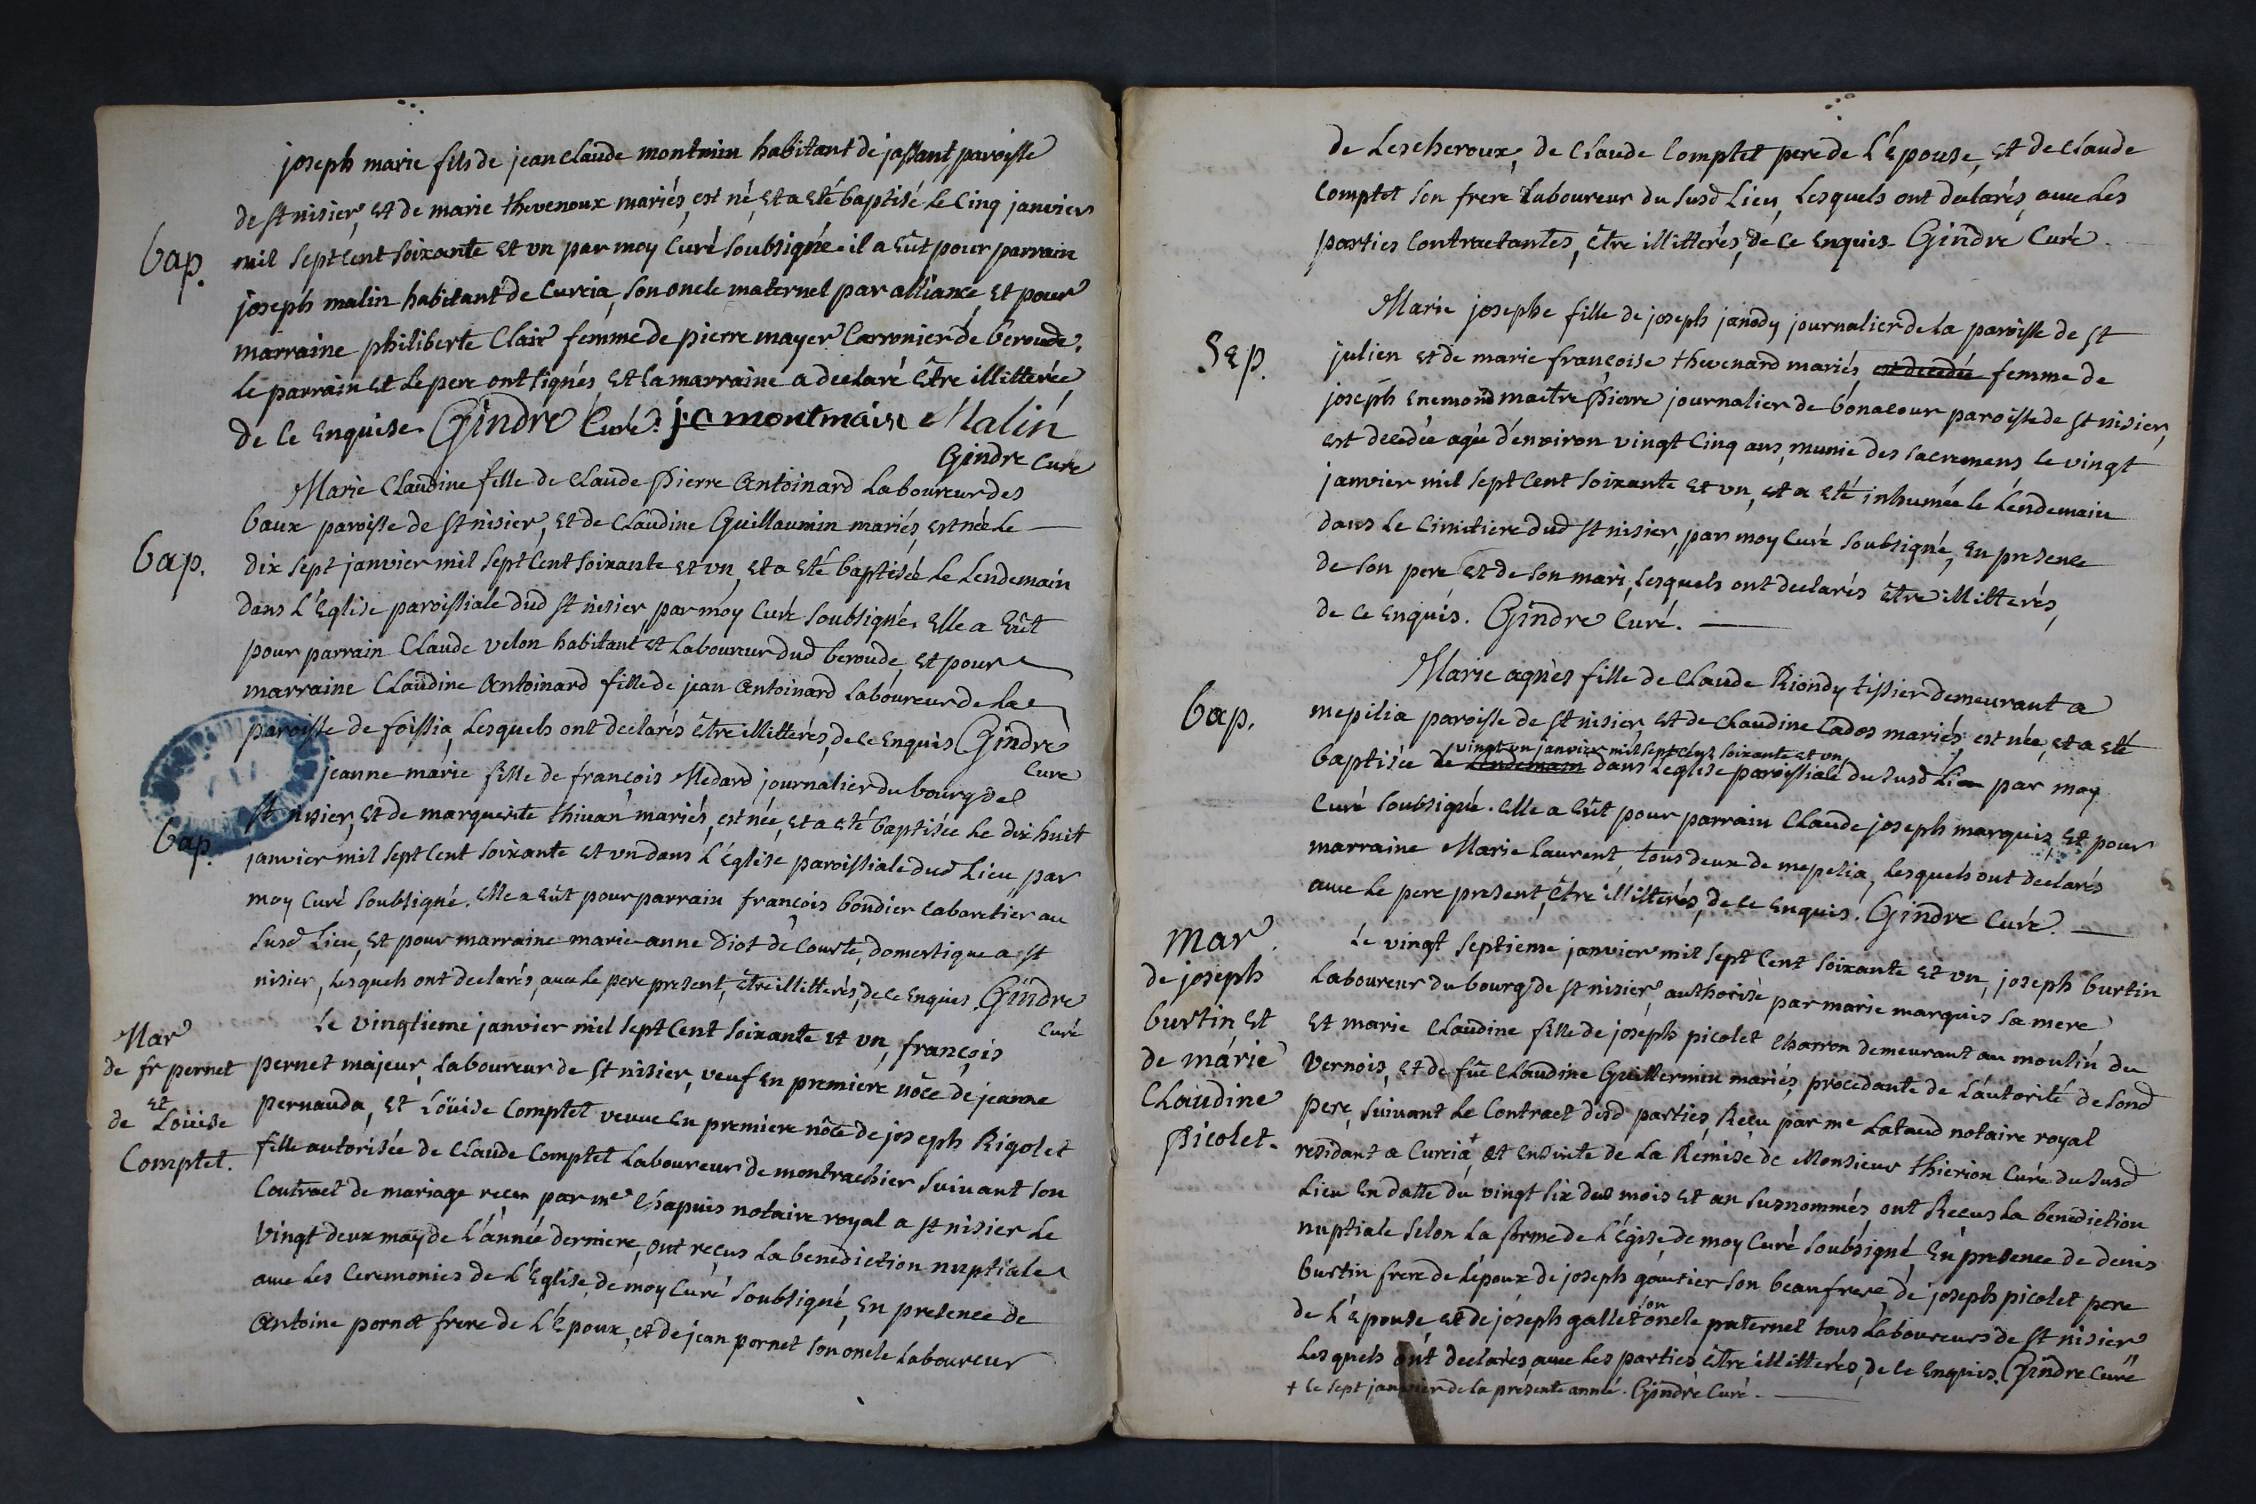 joseph marie fils de jean claude montmin habitant de jassant paroisse
de st nisier, et de marie thevenoux mariés, est né, et a eté baptisé le cinq janvier
bap.
mil sept cent soixante et vn par moy curé soubsigné. il a eût pour parrain
joseph malin habitant de curcia, son oncle maternel par alliance, et pour
marraine philiberte Clair femme de pierre mayer Carronier de beroude.
le parrain et le pere ont signés et la marraine a declaré être illitterée
de ce enquise. Gindre Curé. jc montmain Malin
Gindre Curé
Marie Claudine fille de Claude Pierre Antoinard laboureur des
baux paroisse de st nisier, et de Claudine Guillaumin mariés, est née le
bap.
dix sept janvier mil sept cent soixante et vn, et a eté baptisée le lendemain
dans l'Eglise paroissiale dud st nisier, par moy Curé soubsigné. Elle a eût
pour parrain Claude velon habitant et laboureur dud beroude, et pour
marraine Claudine Antoinard fille de jean Antoinard laboureur de la
paroisse de foissia, lesquels ont declarés être illitterés, de ce enquis Gindre
Curé
jeanne marie fille de françois Medard journalier du bourg de
st nisier, et de marguerite thivan mariés, est née, et a eté baptisée le dix huit
bap.
janvier mil sept cent soixante et vn dans l'Eglise paroissiale dud lieu par
moy Curé soubsigné. Elle a eût pour parrain françois boudier cabaretier au
susd lieu, et pour marraine marie anne Diot de Courte, domestique a st
nisier, lesquels ont declarés, avec le pere present, être illitterés, de ce enquis. Gindre
Curé
Mar
de fr pernet
et
de Loüise
Comptet.
Le vingtieme janvier mil sept cent soixante et vn, françois
pernet majeur, laboureur de st nisier, veuf en premiere nôce de jeanne
pernauda, et Loüise Comptet veuve en premiere nôce de joseph Rigolet
fille autorisée de Claude Comptet laboureur de montrachier suivant son
Contract de mariage reçeu par me Chapuis notaire royal a st nisier le
vingt deux may de l'année derniere, ont reçus la benediction nuptiale
avec les Ceremonies de l'Eglise, de moy Curé soubsigné, en presence de
Antoine pernet frere de l'Epoux, et de jean pernet son oncle laboureur
de Lescheroux, de Claude Comptet pere de l'Epouse, et de Claude
Comptet son frere laboureur du susd lieu, lesquels ont declarés, avec les
parties Contractantes, être illitterés, de ce enquis Gindre Curé.
Marie josephe fille de joseph janody journalier de la paroisse de st
Sep.
julien et de marie françoise thevenard mariés est decedée femme de
joseph Enemond maître Pierre journalier de bonacour paroisse de st nisier,
est decedée agée d'environ vingt cinq ans, munie des sacremens le vingt
janvier mil sept cent soixante et vn, et a eté inhumée le lendemain
dans le Cimitiere dud st nisier, par moy Curé soubsigné, en presence
de son pere et de son mari, lesquels ont declarés être illitterés,
de ce enquis. Gindre Curé.
Marie agnès fille de Claude Riondy tissier demeurant a
bap.
mepilia paroisse de st nisier, et de Claudine Cados mariés, est née, et a eté
vingt vn janvier mil sept cent soixante et vn
baptisée le lendemain dans l'eglise paroissiale du susd lieu par moy
Curé soubsigné. elle a eût pour parrain Claude joseph marquis et pour
marraine Marie Laurent, tous deux de mepilia, lesquels ont declarés
avec le pere present, être illitterés, de ce enquis. Gindre Curé.
Mar
de joseph
burtin et
de marie
Claudine
Picolet.
Le vingt septieme janvier mil sept cent soixante et vn, joseph burtin
laboureur du bourg de st nisier, authorisé par marie marquis sa mere
et marie Claudine fille de joseph picolet Charron demeurant au moulin du
vernois, et de fue Claudine Guillermin mariés, procedante de l'autorité de sond
pere, suivant le Contract desd parties, Reçu par me Lataud notaire royal
residant a Curcia+, et ensuite de la Remise de Monsieur thierion Curé du susd
lieu en datte du vingt six dud mois et an susnommés ont Recus la benediction
nuptiale selon la forme de l'égise de moy Curé soubsigné, en presence de denis
burtin frere de l'époux de joseph gautier son beaufrere, de joseph picolet pere
son
de l'Epouse et de joseph gallet oncle paternel tous laboureurs de st nisier
lesquels ont declarés avec les parties être illitterés, de ce enquis. Gindre Curé
+ le sept janvier de la présente année. Gindre Curé.